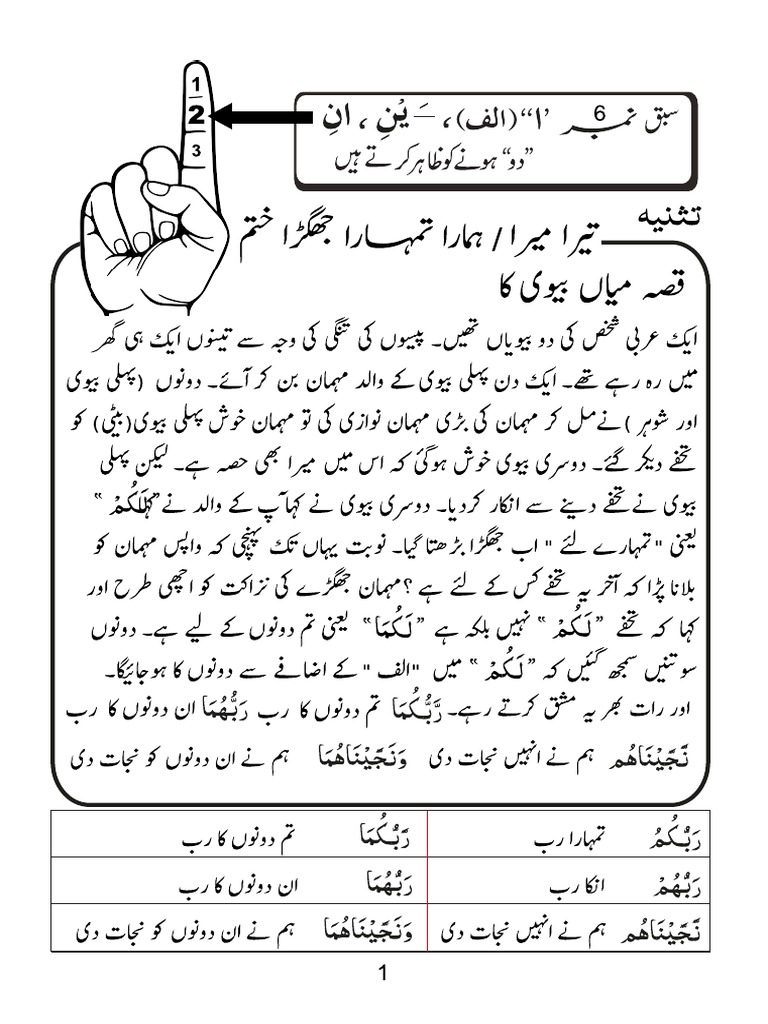 1
2
3
سبق نمبر 6 "ا" (الف) ، ـَ یْنِ ، انِ
"دو" ہونے کو ظاہر کرتے ہیں
تثنیہ
تیرا میرا / ہمارا تمہارا جھگڑا ختم
قصہ میاں بیوی کا
ایک عربی شخص کی دو بیویاں تھیں۔ پیسوں کی تنگی کی وجہ سے تینوں ایک ہی گھر
میں رہ رہے تھے۔ ایک دن پہلی بیوی کے والد مہمان بن کر آئے۔ دونوں (پہلی بیوی
اور شوہر )نے مل کر مہمان کی بڑی مہمان نوازی کی تو مہمان خوش پہلی بیوی(بیٹی) کو
تحفے دیکر گئے۔ دوسری بیوی خوش ہوگئی کہ اس میں میرا بھی حصہ ہے۔ لیکن پہلی
بیوی نے تحفے دینے سے انکار کردیا۔ دوسری بیوی نے کہا آپ کے والد نے کہا "لَكُمْ"
یعنی "تمہارے لئے " اب جھگڑا بڑھتا گیا۔ نوبت یہاں تک پہنچی کہ واپس مہمان کو
بلانا پڑا کہ آخر یہ تحفے کس کے لئے ہے ؟مہمان جھگڑے کی نزاکت کو اچھی طرح اور
کہا کہ تحفے "لَكُمْ" نہیں بلکہ ہے "لَكُمَا" یعنی تم دونوں کے لیے ہے۔ دونوں
سوتنیں سمجھ گئیں کہ "لَكُمْ" میں "الف" کے اضافے سے دونوں کا ہوجائیگا۔
اور رات بھر یہ مشق کرتے رہے۔ رَّبُّكُمَا تم دونوں کا رب رَبُّهُمَا ان دونوں کا رب
نَّجَّيْنَاهُم ہم نے انہیں نجات دی وَنَجَّيْنَاهُمَا ہم نے ان دونوں کو نجات دی
رَبُّكُمُ تمہارا رب رَّبُّكُمَا تم دونوں کا رب
رَبُّهُمْ انکا رب رَبُّهُمَا ان دونوں کا رب
نَّجَّيْنَاهُم ہم نے انہیں نجات دی وَنَجَّيْنَاهُمَا ہم نے ان دونوں کو نجات دی
1